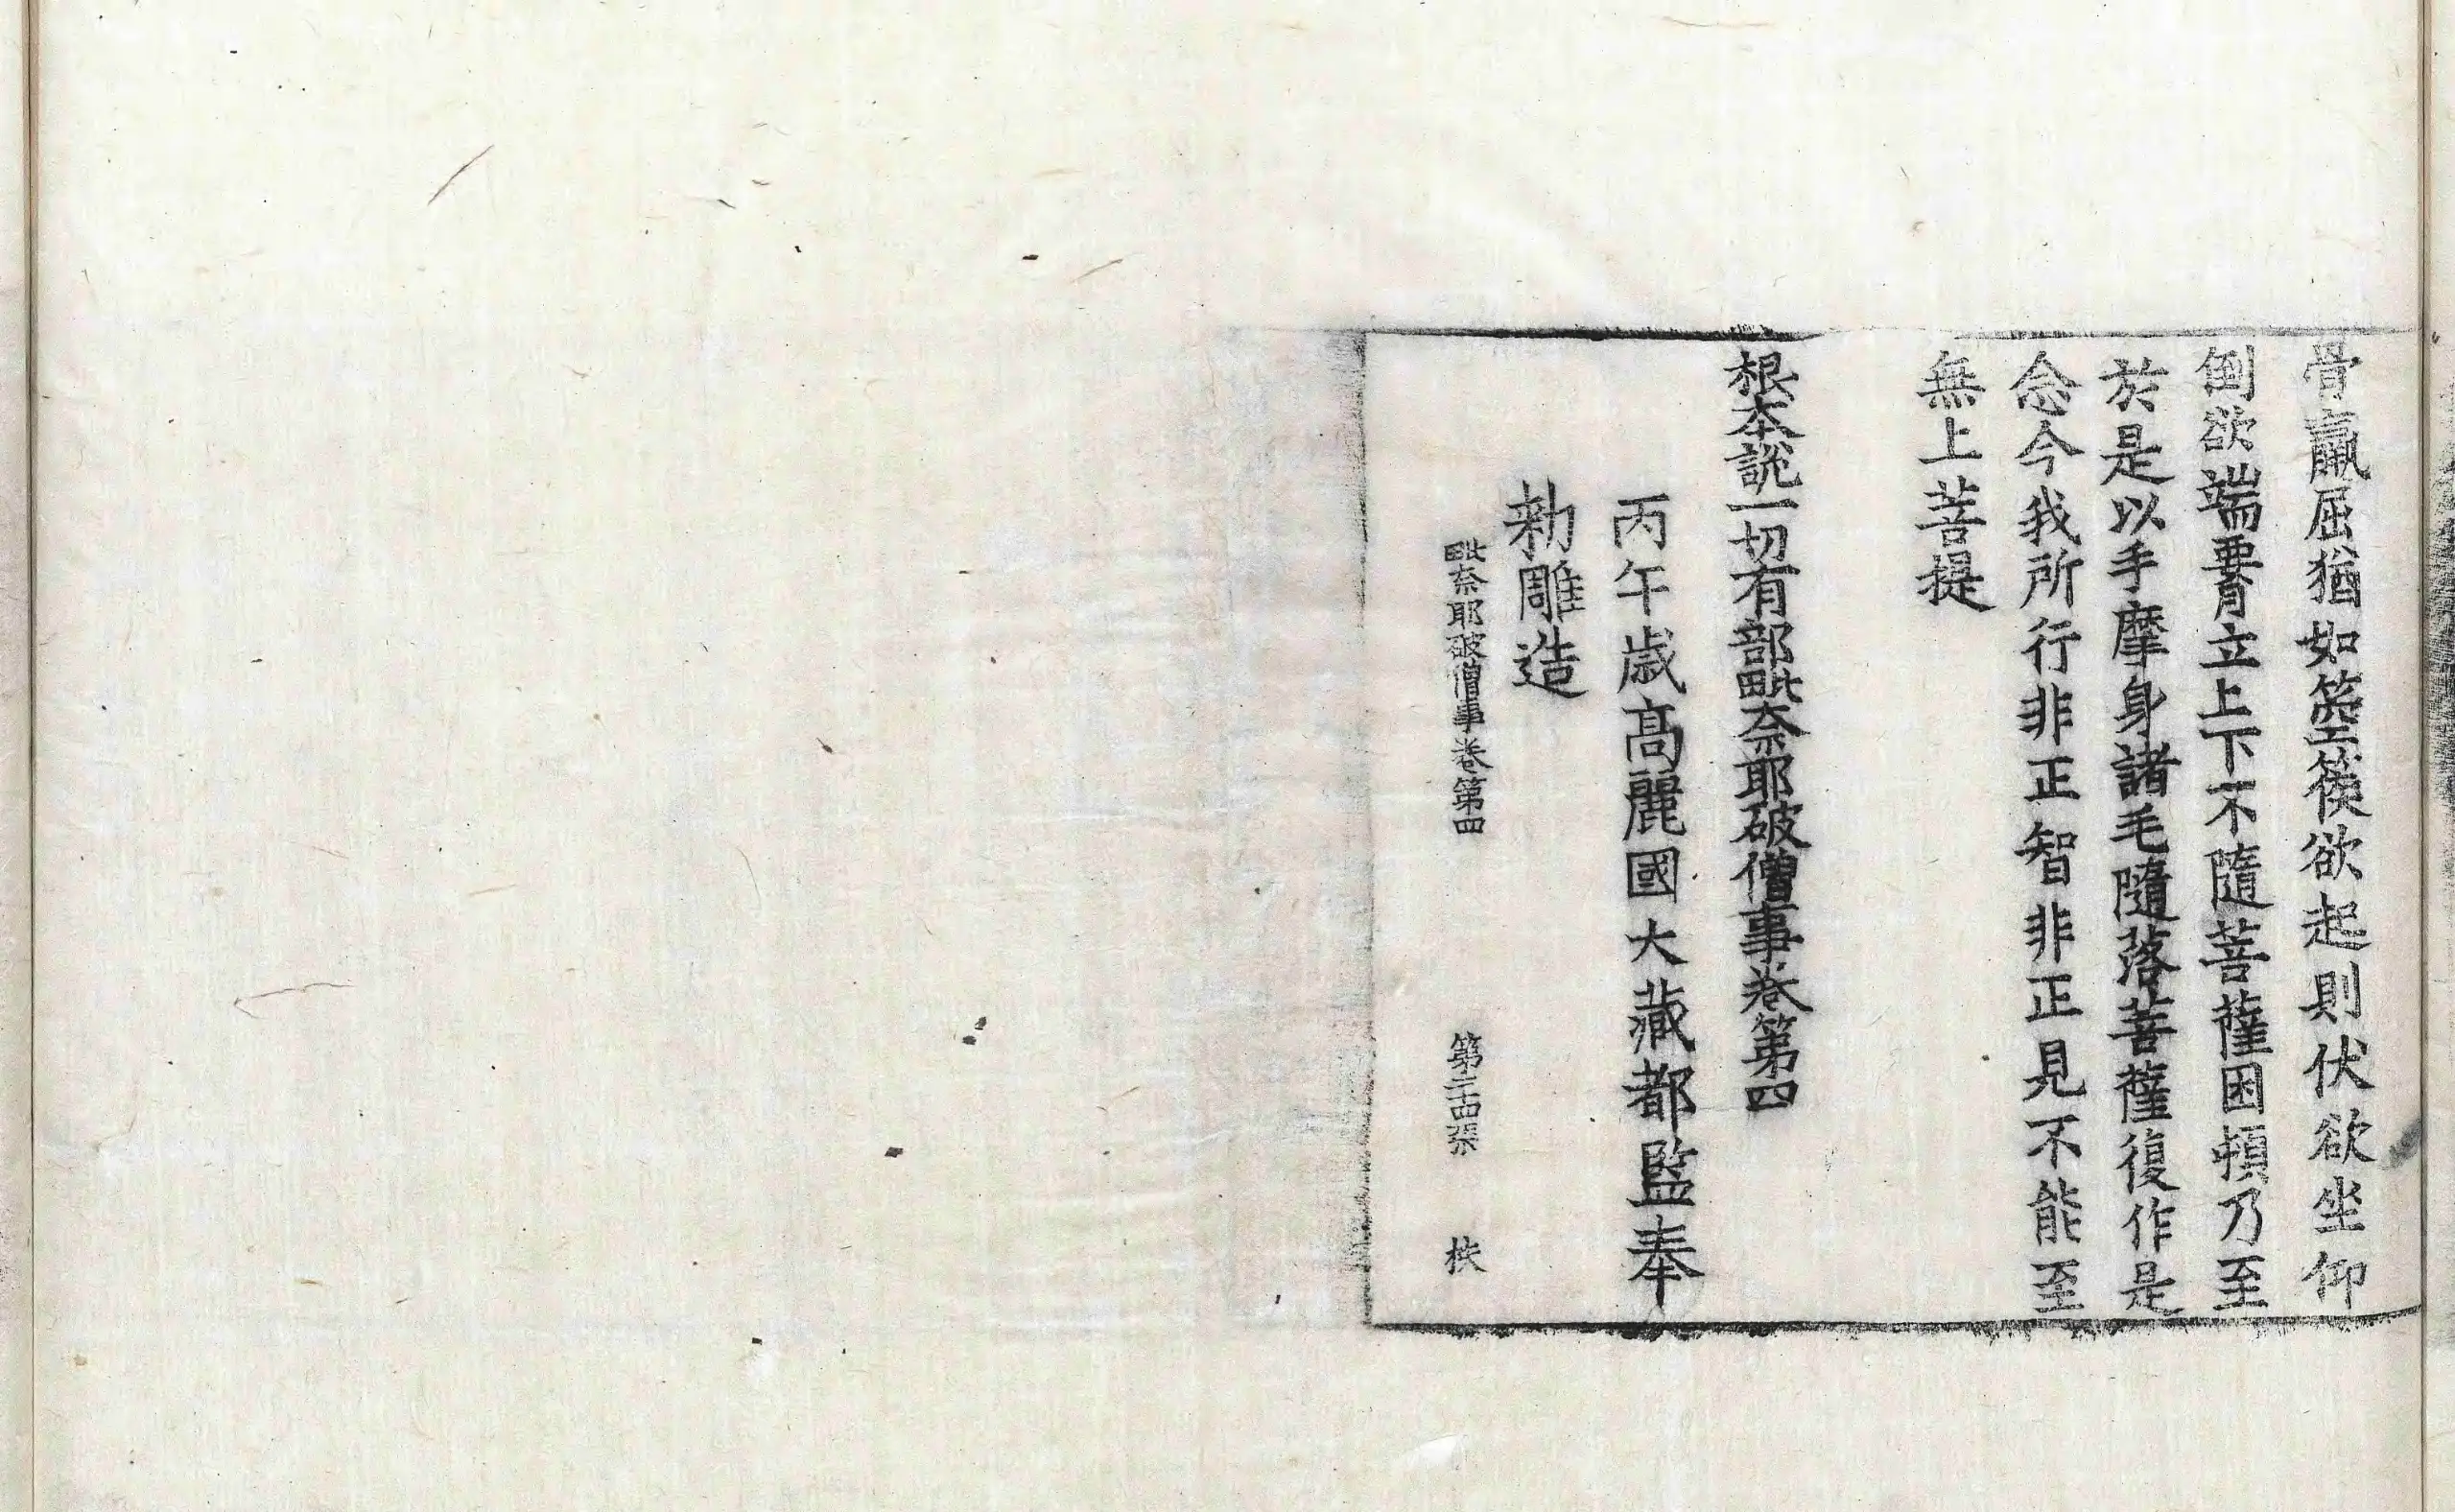 骨羸屈猶如箜篌欲起則伏欲坐仰
倒欲端䯒立上下不隨菩薩困頓乃至
於是以手摩身諸毛隨落菩薩復作是
念今我所行非正智非正見不能至
無上菩提
根本說一切有部毗奈耶破僧事卷第四
丙午歲高麗國大藏都監奉
勑雕造
毗奈耶破僧事卷第四 第二十四張 枎